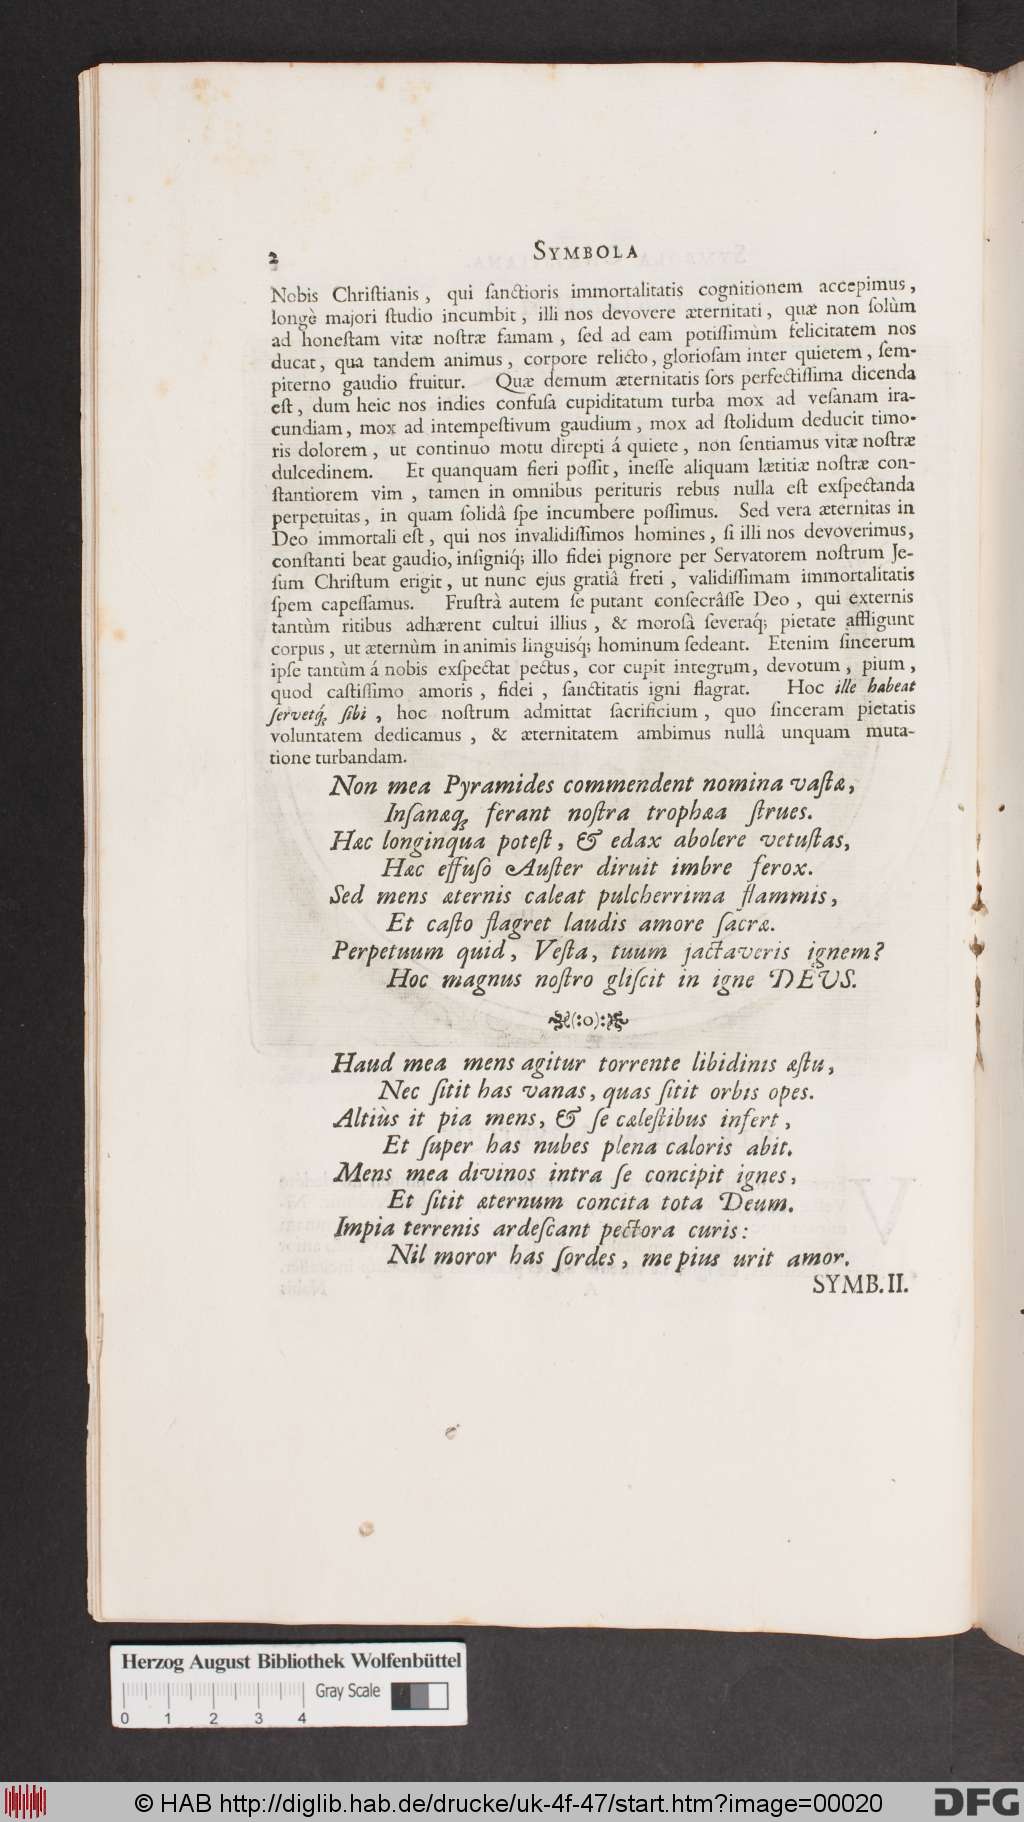 2 SYMBOLA
Nobis Chriſtianis, qui ſanctioris immortalitatis cognitionem accepimus,
longè majori ſtudio incumbit, illi nos devovere æternitati, quæ non ſolùm
ad honeſtam vitæ noſtræ famam, ſed ad eam potiſſimùm felicitatem nos
ducat, qua tandem animus, corpore relicto, glorioſam inter quietem, ſem-
piterno gaudio fruitur. Quæ demum æternitatis ſors perfectiſſima dicenda
eſt, dum heic nos indies confuſa cupiditatum turba mox ad veſanam ira-
cundiam, mox ad intempeſtivum gaudium, mox ad ſtolidum deducit timo-
ris dolorem, ut continuo motu direpti á quiete, non ſentiamus vitæ noſtræ
dulcedinem. Et quanquam fieri poſſit, ineſſe aliquam lætitiæ noſtræ con-
ſtantiorem vim, tamen in omnibus perituris rebus nulla eſt exſpectanda
perpetuitas, in quam ſolidâ ſpe incumbere poſſimus. Sed vera æternitas in
Deo immortali eſt, qui nos invalidiſſimos homines, ſi illi nos devoverimus,
conſtanti beat gaudio, inſigniq́; illo fidei pignore per Servatorem noſtrum Je-
ſum Chriſtum erigit, ut nunc ejus gratiâ freti, validiſſimam immortalitatis
ſpem capeſſamus. Fruſtrà autem ſe putant conſecrâſſe Deo, qui externis
tantùm ritibus adhærent cultui illius, & moroſâ ſeveraq́; pietate affligunt
corpus, ut æternùm in animis linguisq́; hominum ſedeant. Etenim ſincerum
ipſe tantùm á nobis exſpectat pectus, cor cupit integrum, devotum, pium,
quod caſtiſſimo amoris, fidei, ſanctitatis igni flagrat. Hoc ille habeat
ſervetq́; ſibi, hoc noſtrum admittat ſacrificium, quo ſinceram pietatis
voluntatem dedicamus, & æternitatem ambimus nullâ unquam muta-
tione turbandam.
Non mea Pyramides commendent nomina vaſtæ,
Inſanæq; ferant noſtra trophæa ſtrues.
Hæc longinqua poteſt, & edax abolere vetuſtas,
Hæc effuſo Auſter diruit imbre ferox.
Sed mens æternis caleat pulcherrima flammis,
Et caſto flagret laudis amore ſacræ.
Perpetuum quid, Veſta, tuum jactaveris ignem?
Hoc magnus noſtro gliſcit in igne DEUS.
(:o):
Haud mea mens agitur torrente libidinis æſtu,
Nec ſitit has vanas, quas ſitit orbis opes.
Altiùs it pia mens, & ſe cæleſtibus infert,
Et ſuper has nubes plena caloris abit.
Mens mea divinos intra ſe concipit ignes,
Et ſitit æternum concita tota Deum.
Impia terrenis ardeſcant pectora curis:
Nil moror has ſordes, me pius urit amor.
SYMB. II.
Herzog August Bibliothek Wolfenbüttel
Gray Scale
0 1 2 3 4
© HAB http://diglib.hab.de/drucke/uk-4f-47/start.htm?image=00020
DFG